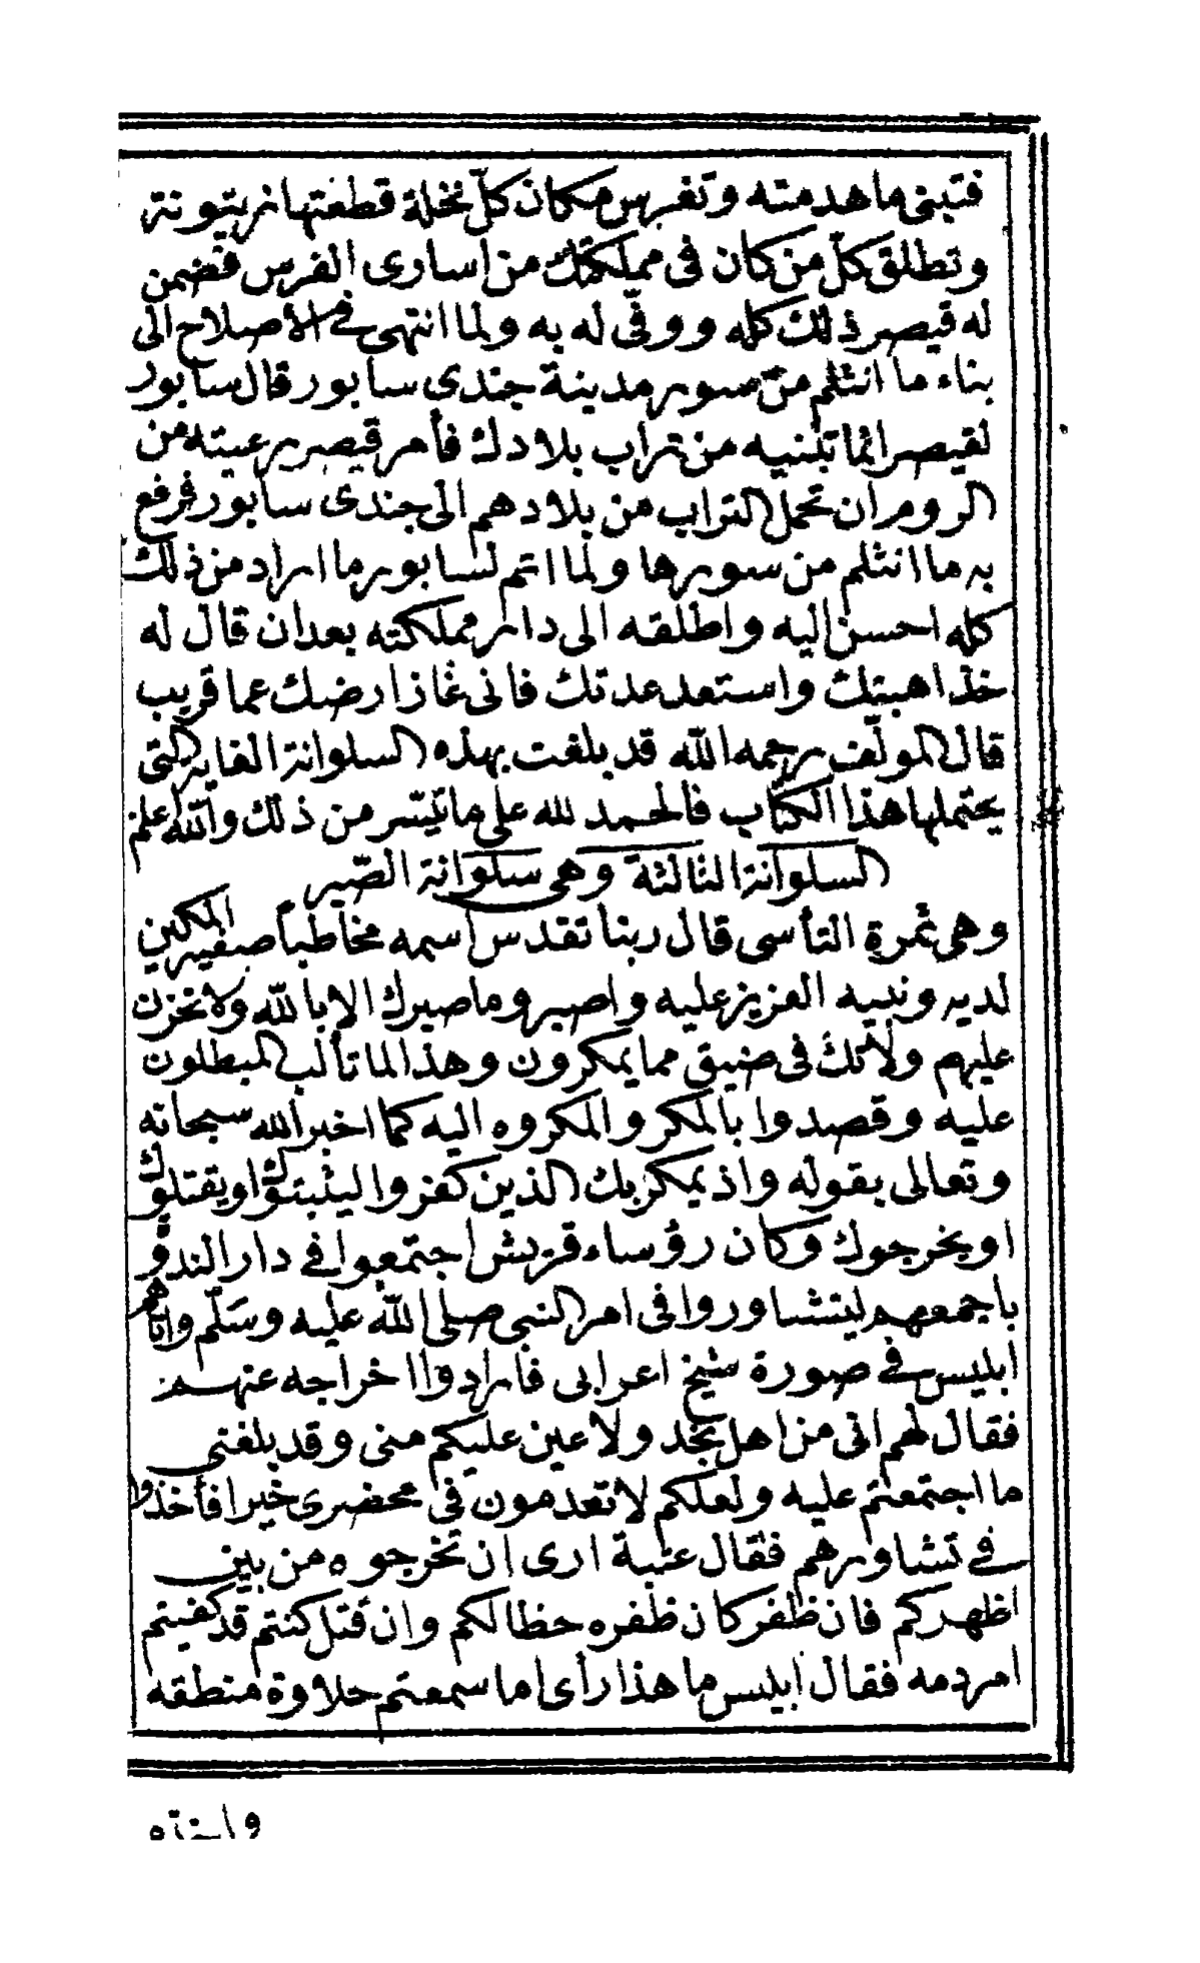 فتبنى ما هدمته وتغرس مكان كلّ نخلة قطعتها زيتونة
وتطلق كلّ من كان فى مملكتك من اسارى الفرس فضمن
له قيصر ذلك كله ووفّى له به ولما انتهى فى الأصلاح الى
بناء ما انثلم من سور مدينة جندى سابور قال سابور
لقيصر انما تبنيه من تراب بلادك فأمر قيصر رعيته من
الروم ان تحمل التراب من بلادهم الى جندى سابور فرفع
به ما انثلم من سورها ولما اتم لسابور ما اراد من ذلك
كله احسن اليه واطلقه الى دار مملكته بعد ان قال له
خذ اهبتك واستعد عدتك فانى غاز ارضك عما قريب
قال المولّف رحمه الله قد بلغت بهذه السلوانة الغاية التى
يحتملها هذا الكتاب فالحمد لله على ما تيسّر من ذلك والله اعلم
السلوانة الثالثة وهى سلوانة الصّبر
وهى ثمرة التأسى قال ربنا تقدس اسمه مخاطباً صفيه المكين
لديه ونبيه العزيز عليه واصبر وما صبرك الا بالله ولا تحزن
عليهم ولا تك فى ضيق مما يمكرون وهذا لما تألب المبطلون
عليه وقصدوا بالمكر والمكروه اليه كما اخبر الله سبحانه
وتعالى بقوله واذ يمكر بك الذين كفروا ليثبتوك او يقتلوك
او يخرجوك وكان رؤساء قريش اجتمعوا فى دار الندوة
باجمعهم ليتشاوروا فى امر النبى صلى الله عليه وسلّم واتاهم
ابليس فى صورة شيخ اعرابى فارادوا اخراجه عنهم
فقال لهم انى من اهل نجد ولا عين عليكم منى وقد بلغنى
ما اجتمعتم عليه ولعلكم لا تعدمون فى محضرى خيرا فأخذوا
فى تشاورهم فقال عتبة ارى ان تخرجوه من بين
اظهركم فان ظفر كان ظفره حظا لكم وان قتل كنتم قد كفيتم
امر دمه فقال ابليس ما هذا رأى اما سمعتم حلاوة منطقه